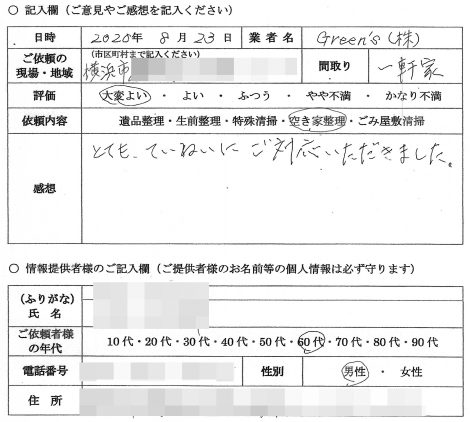 ○ 記入欄（ご意見やご感想を記入ください）
日時 2020年 8月23日 業者名 Green's（株）
ご依頼の現場・地域 （市区町村まで記入ください） 横浜市 間取り 一軒家
評価 大変よい ・ よい ・ ふつう ・ やや不満 ・ かなり不満
依頼内容 遺品整理・生前整理・特殊清掃・空き家整理・ごみ屋敷清掃
感想 とても、ていねいにご対応いただきました。
○ 情報提供者様のご記入欄（ご提供者様のお名前等の個人情報は必ず守ります）
（ふりがな）
氏名
ご依頼者様の年代 10代・20代・30代・40代・50代・60代・70代・80代・90代
電話番号 性別 男性 ・ 女性
住所